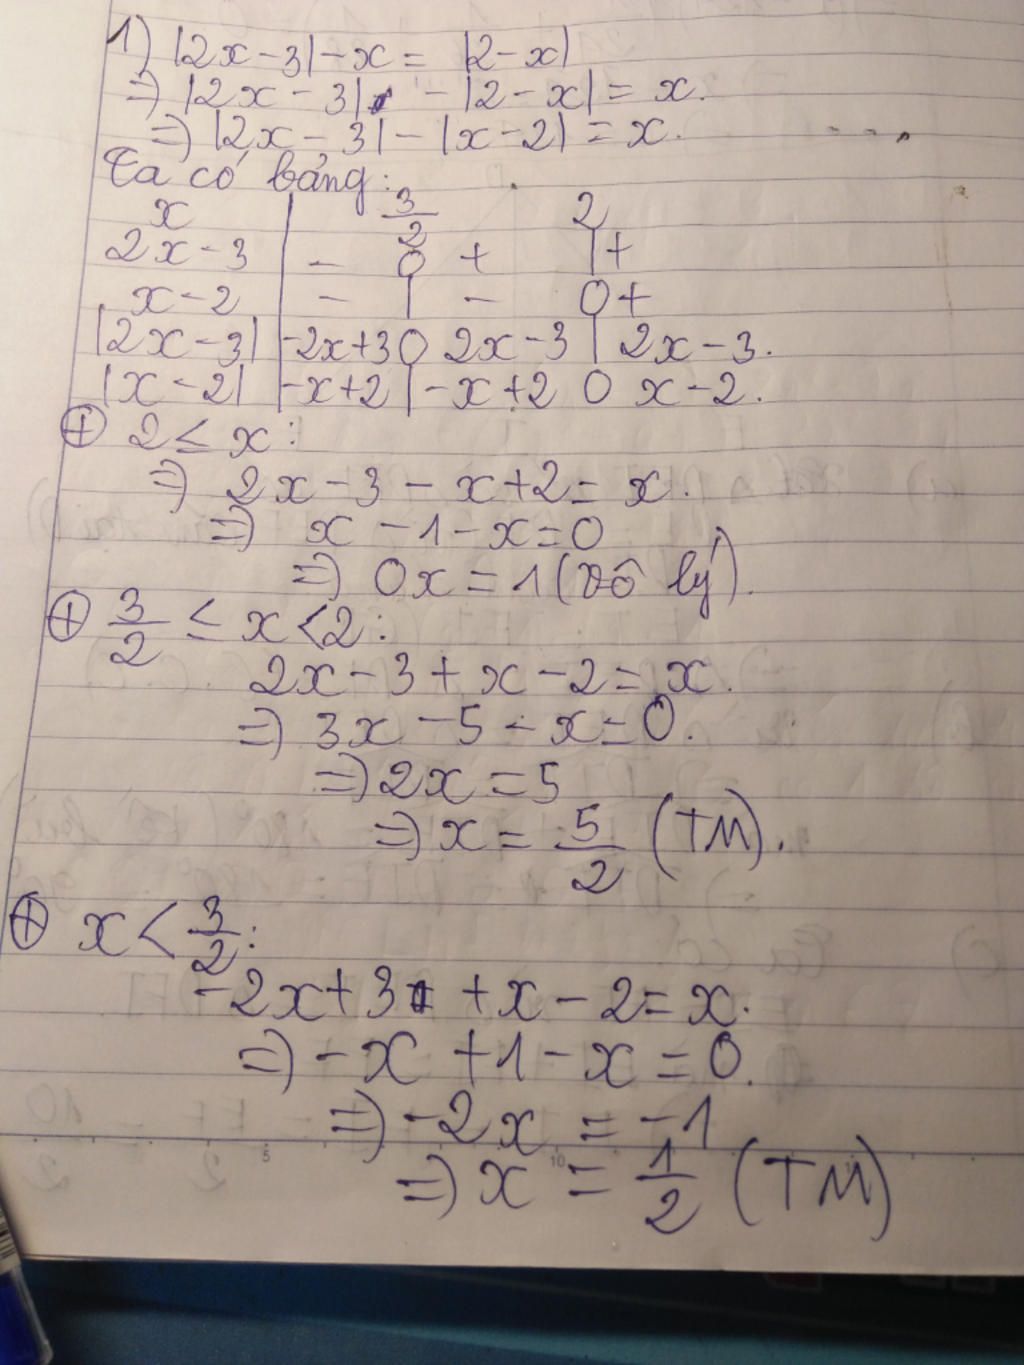 1) |2x-3|-x = |2-x|
=> |2x-3| - |2-x| = x.
=> |2x-3|-|x-2| = x.
Ta có bảng:
x | 3/2 2
2x-3 | - 0 + | +
x-2 | - | - 0 +
|2x-3| | -2x+3 0 2x-3 | 2x-3.
|x-2| | -x+2 | -x+2 0 x-2.
⊕ 2 ≤ x:
=> 2x-3-x+2 = x.
=> x-1-x=0
=> 0x = 1 (vô lý).
⊕ 3/2 ≤ x < 2:
2x-3+x-2 = x.
=> 3x-5-x=0.
=> 2x = 5
=> x = 5/2 (TM).
⊕ x < 3/2:
-2x+3 +x-2 = x.
=> -x+1-x = 0.
=> -2x = -1
=> x = 1/2 (TM)
5 10